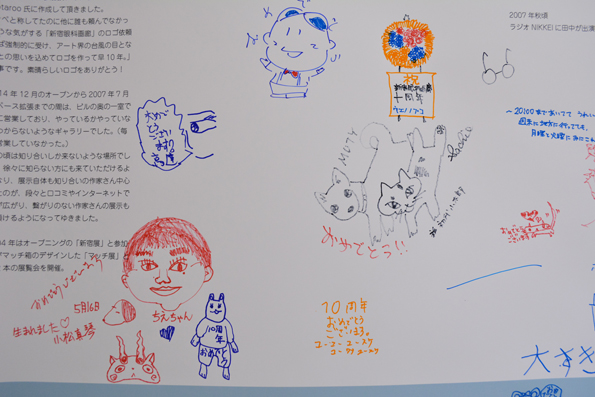 taroo 氏に作成して頂きました。
べと称してたのに他に誰も頼んでなかっ
うな気がする「新宿眼科画廊」のロゴ依頼
ば強制的に受け、アート界の台風の目とな
との思いを込めてロゴを作って早10年。」
事です。素晴らしいロゴをありがとう！
4 年 12 月のオープンから 2007 年 7 月
ベース拡張までの間は、ビルの奥の一室で
に営業しており、やっているかやっていな
つからないようなギャラリーでした。（毎
営業していなかった。）
の頃は知り合いしか来ないような場所でし
、徐々に知らない方にも来ていただけるよ
なり、展示自体も知り合いの作家さん中心
たのが、段々と口コミやインターネットで
が広がり、繋がりのない作家さんの展示も
頂けるようになってゆきました。
4 年はオープニングの「新宿展」と参加
マッチ箱のデザインした「マッチ展」
本の展覧会を開催。
2007 年秋頃
ラジオ NIKKEI に田中が出演
祝
十周年
おめで
とう
ござい
ます。
おめでとう!!
ちえちゃん
5月16日
生まれました♡
小松真琴
10周年
おめでとう
10周年
おめでとう
ございます。
大すき